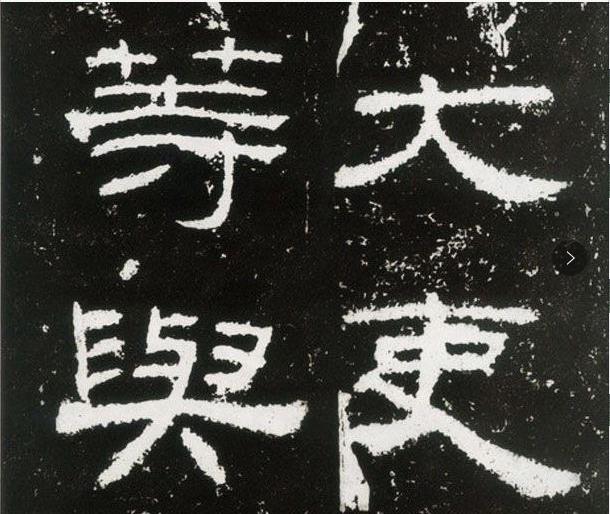 大吏
等與